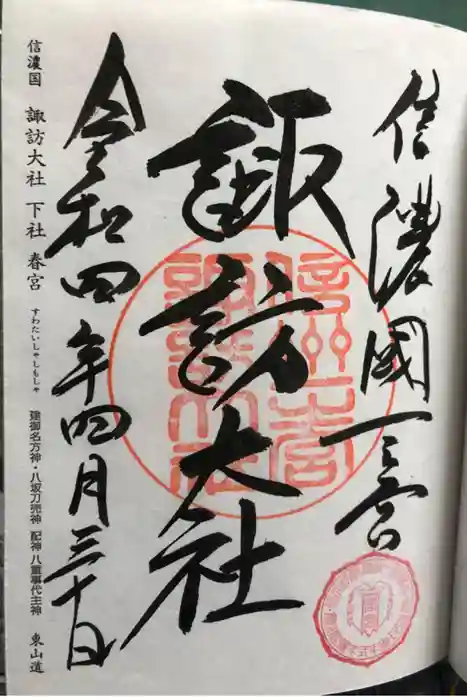 信濃國一之宮
諏訪大社
令和四年四月三十日
信濃国 諏訪大社 下社 春宮 すわたいしゃしもしゃ 建御名方神・八坂刀売神 配神 八重事代主神 東山道
信州一之宮
諏訪大社